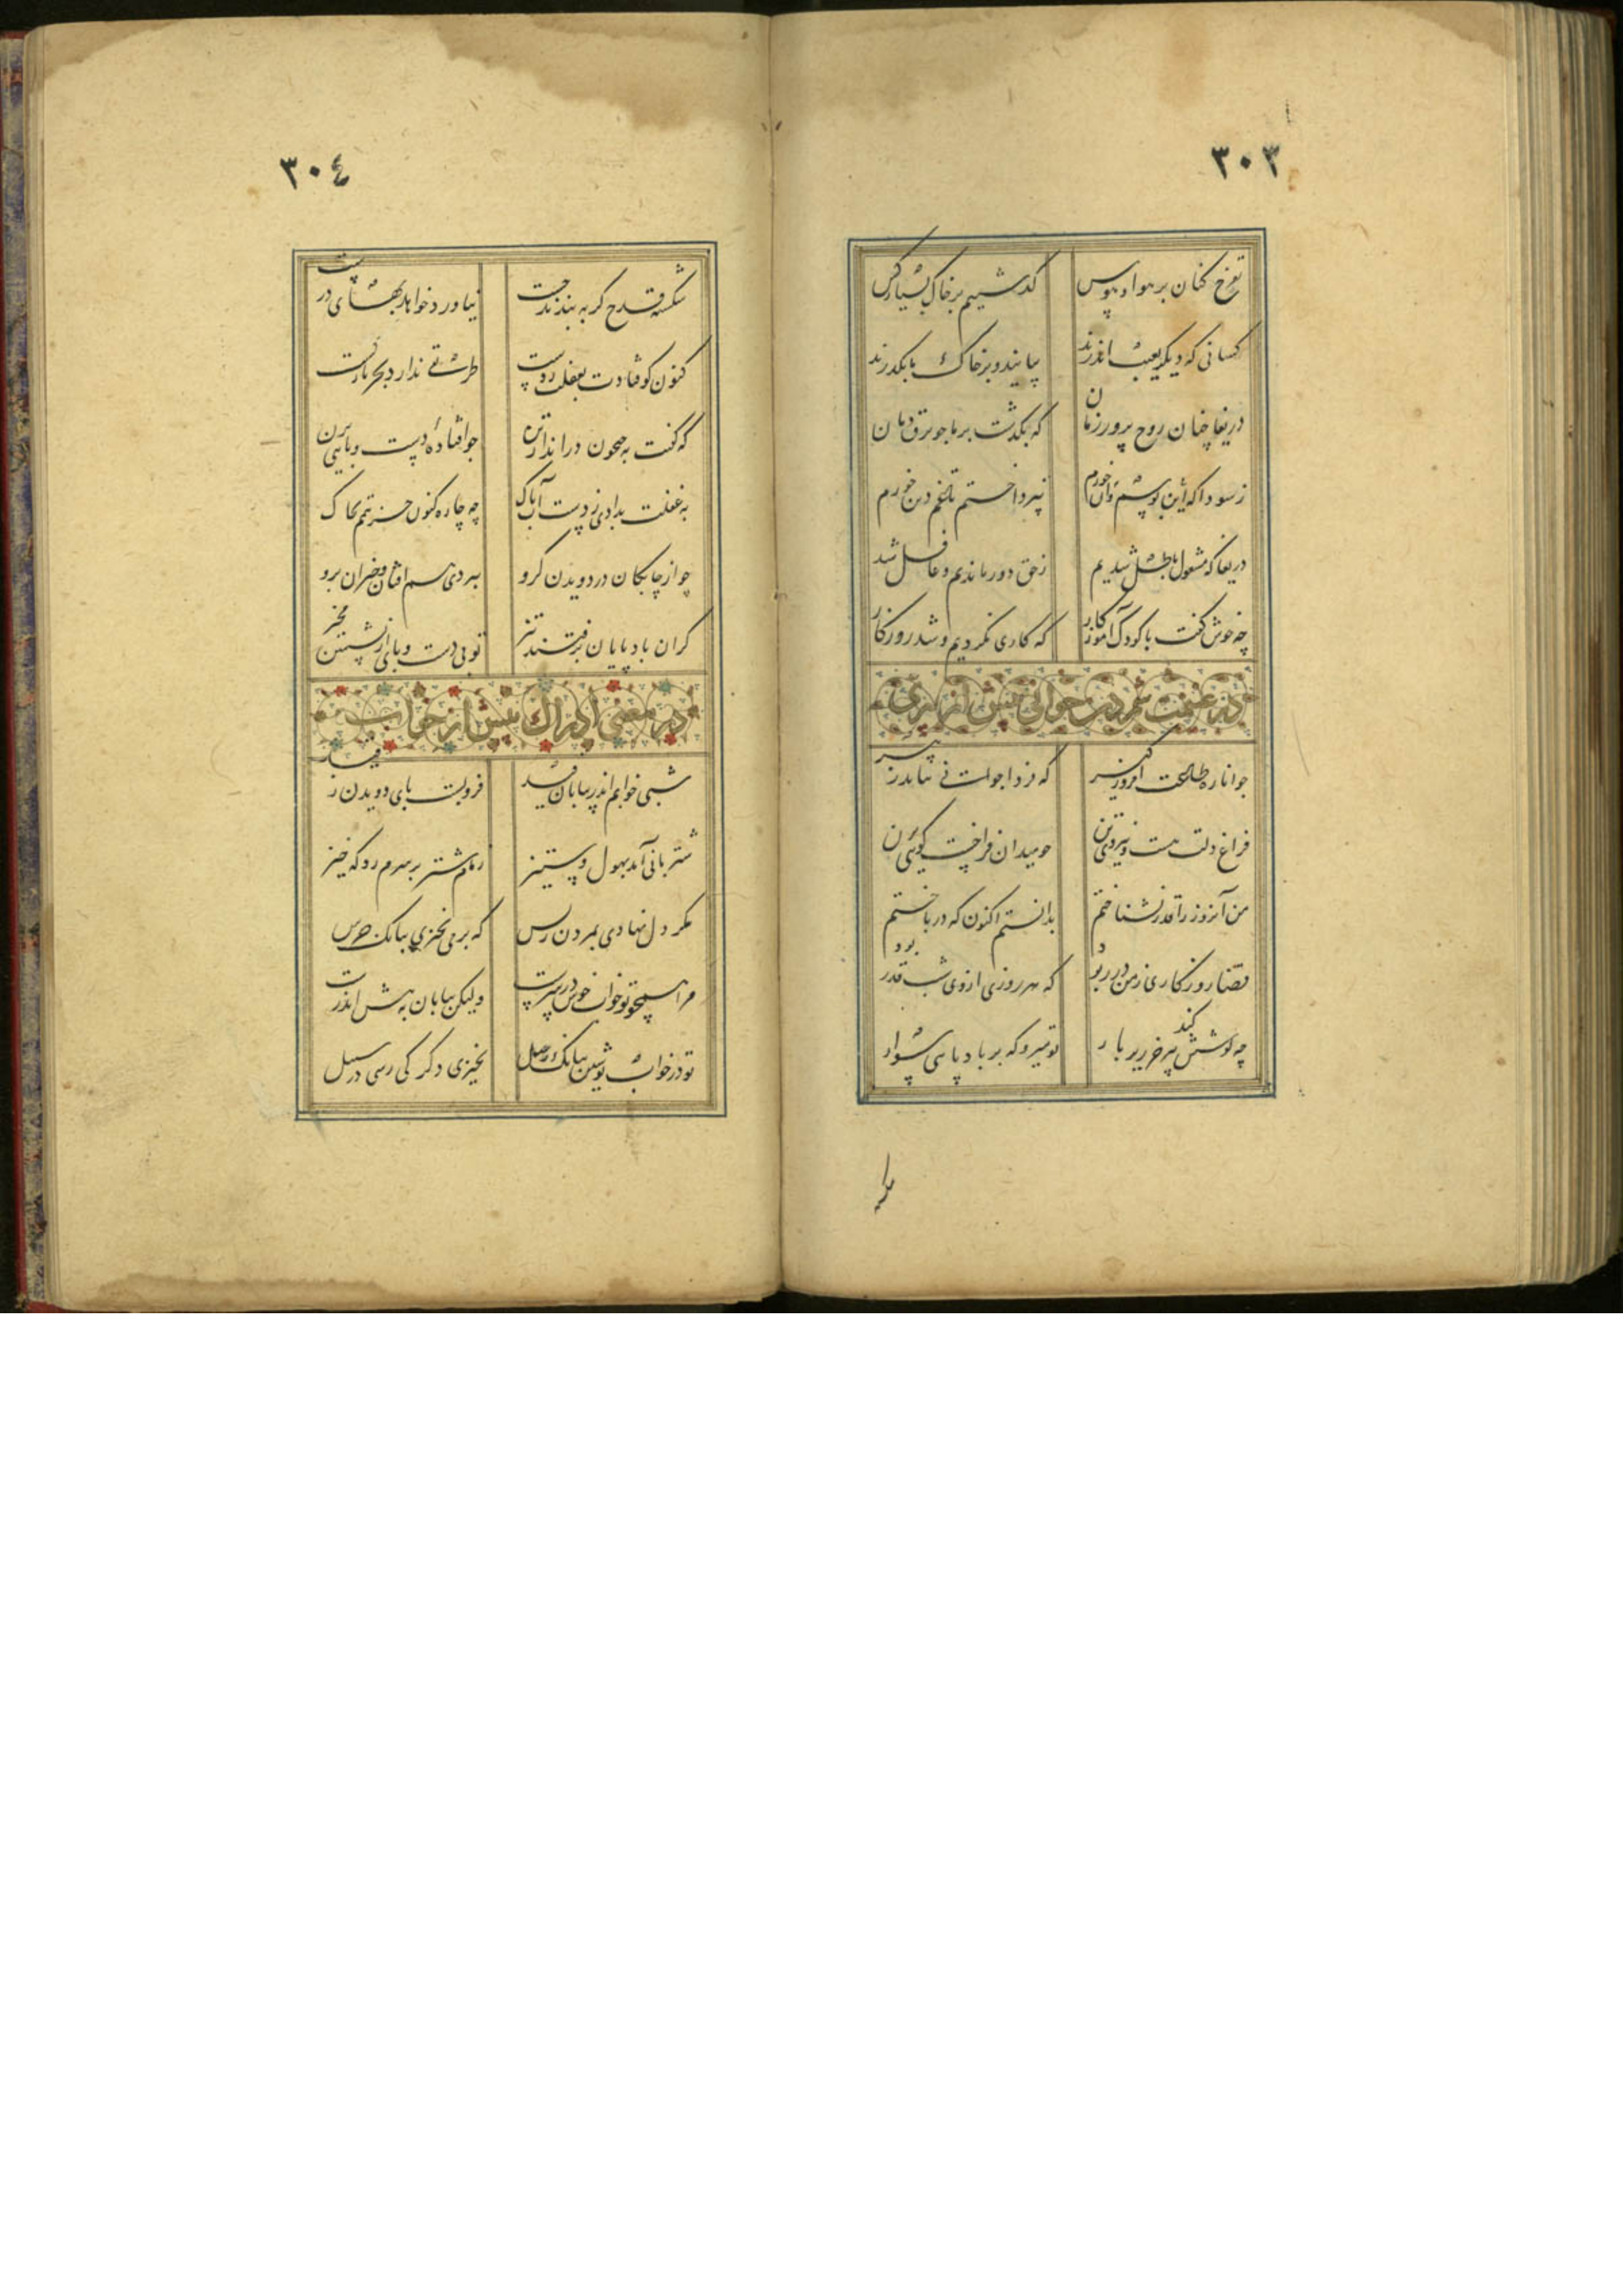 ٣٠٣
تفرج کنان بر هوا و هوس گذشتیم بر خاک بسیار کس
کسانی که دیگر بغیب اندرند بیایند و بر خاک ما بگذرند
دریغا چنان روح پرور زمان که بگذشت بر ما چو برق دمان
ز سودا که این پوشم و آن خورم نپرداختم تا غم دین خورم
دریغا که مشغول باطل شدیم ز حق دور ماندیم و غافل شد
چه خوش گفت با کودک آموزگار که کاری نکردیم و شد روزگار
در غنیمت شمردن جوانی پیش از پیری
جوانا ره طاعت امروز گیر که فردا جوانی نیاید ز پیر
فراغ دلت هست و نیروی تن چو میدان فراخست گوئی بزن
من آنروز را قدر نشناختم بدانستم اکنون که در باختم
قضا روزگاری ز من در ربود که هر روزی از وی شب قدر بود
چه کوشش کند پیر خر زیر بار تو میرو که بر باد پایی سوار
٣٠٤
شکسته قدح گر ببندند چست نیاورد خواهد بهای درست
کنون کوفتادت بغفلت ز دست طریقی ندارد بجز باز بست
که گفت به جیحون در انداز تن چو افتاده دست و پایی بزن
به غفلت بدادی ز دست آب پاک چه چاره کنون جز تیمم بخاک
چو از چابکان در دویدن گرو نبردی هم افتان و خیزان برو
گر آن باد پایان برفتند تیز تو بی دست و پای از نشستن بخیز
در معنی ادراک پیش از خواب
شبی خوابم اندر بیابان فید فرو بست پای دویدن ز قید
شتربانی آمد بهول و ستیز زمام شتر بر سرم زد که خیز
مگر دل نهادی بمردن ز پس که بر می نخیزی ببانک جرس
مرا همچو تو خواب خوش در سرست ولیکن بیابان به پیش اندرست
تو در خواب نوشین ببانک رحیل نخیزی دگر کی رسی در سبیل